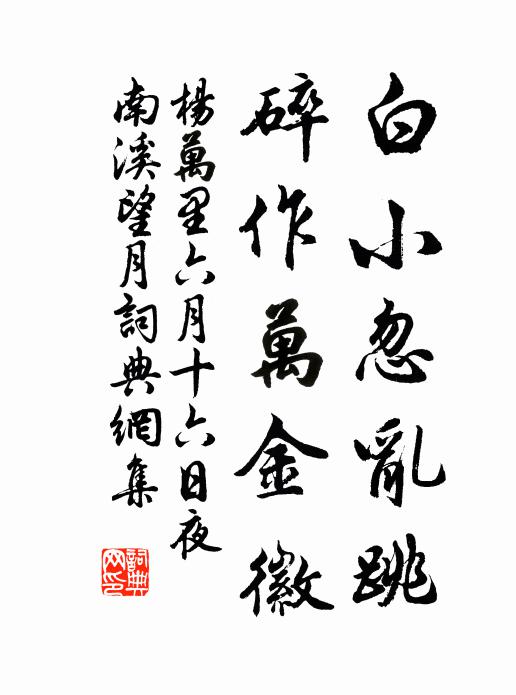 白小忽亂跳
碎作萬金徽
楊萬里六月十六日夜
南溪望月詞典網集
詞典网印